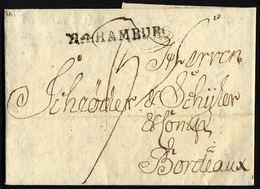 R4HAMBURG
Herren
Schröder & Schÿler
& Comp
à
Bordeaux